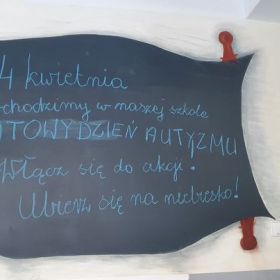 4 kwietnia
chodzimy w naszej szkole
TOWY DZIEŃ AUTYZMU
Włącz się do akcji.
Ubierz się na niebiesko!